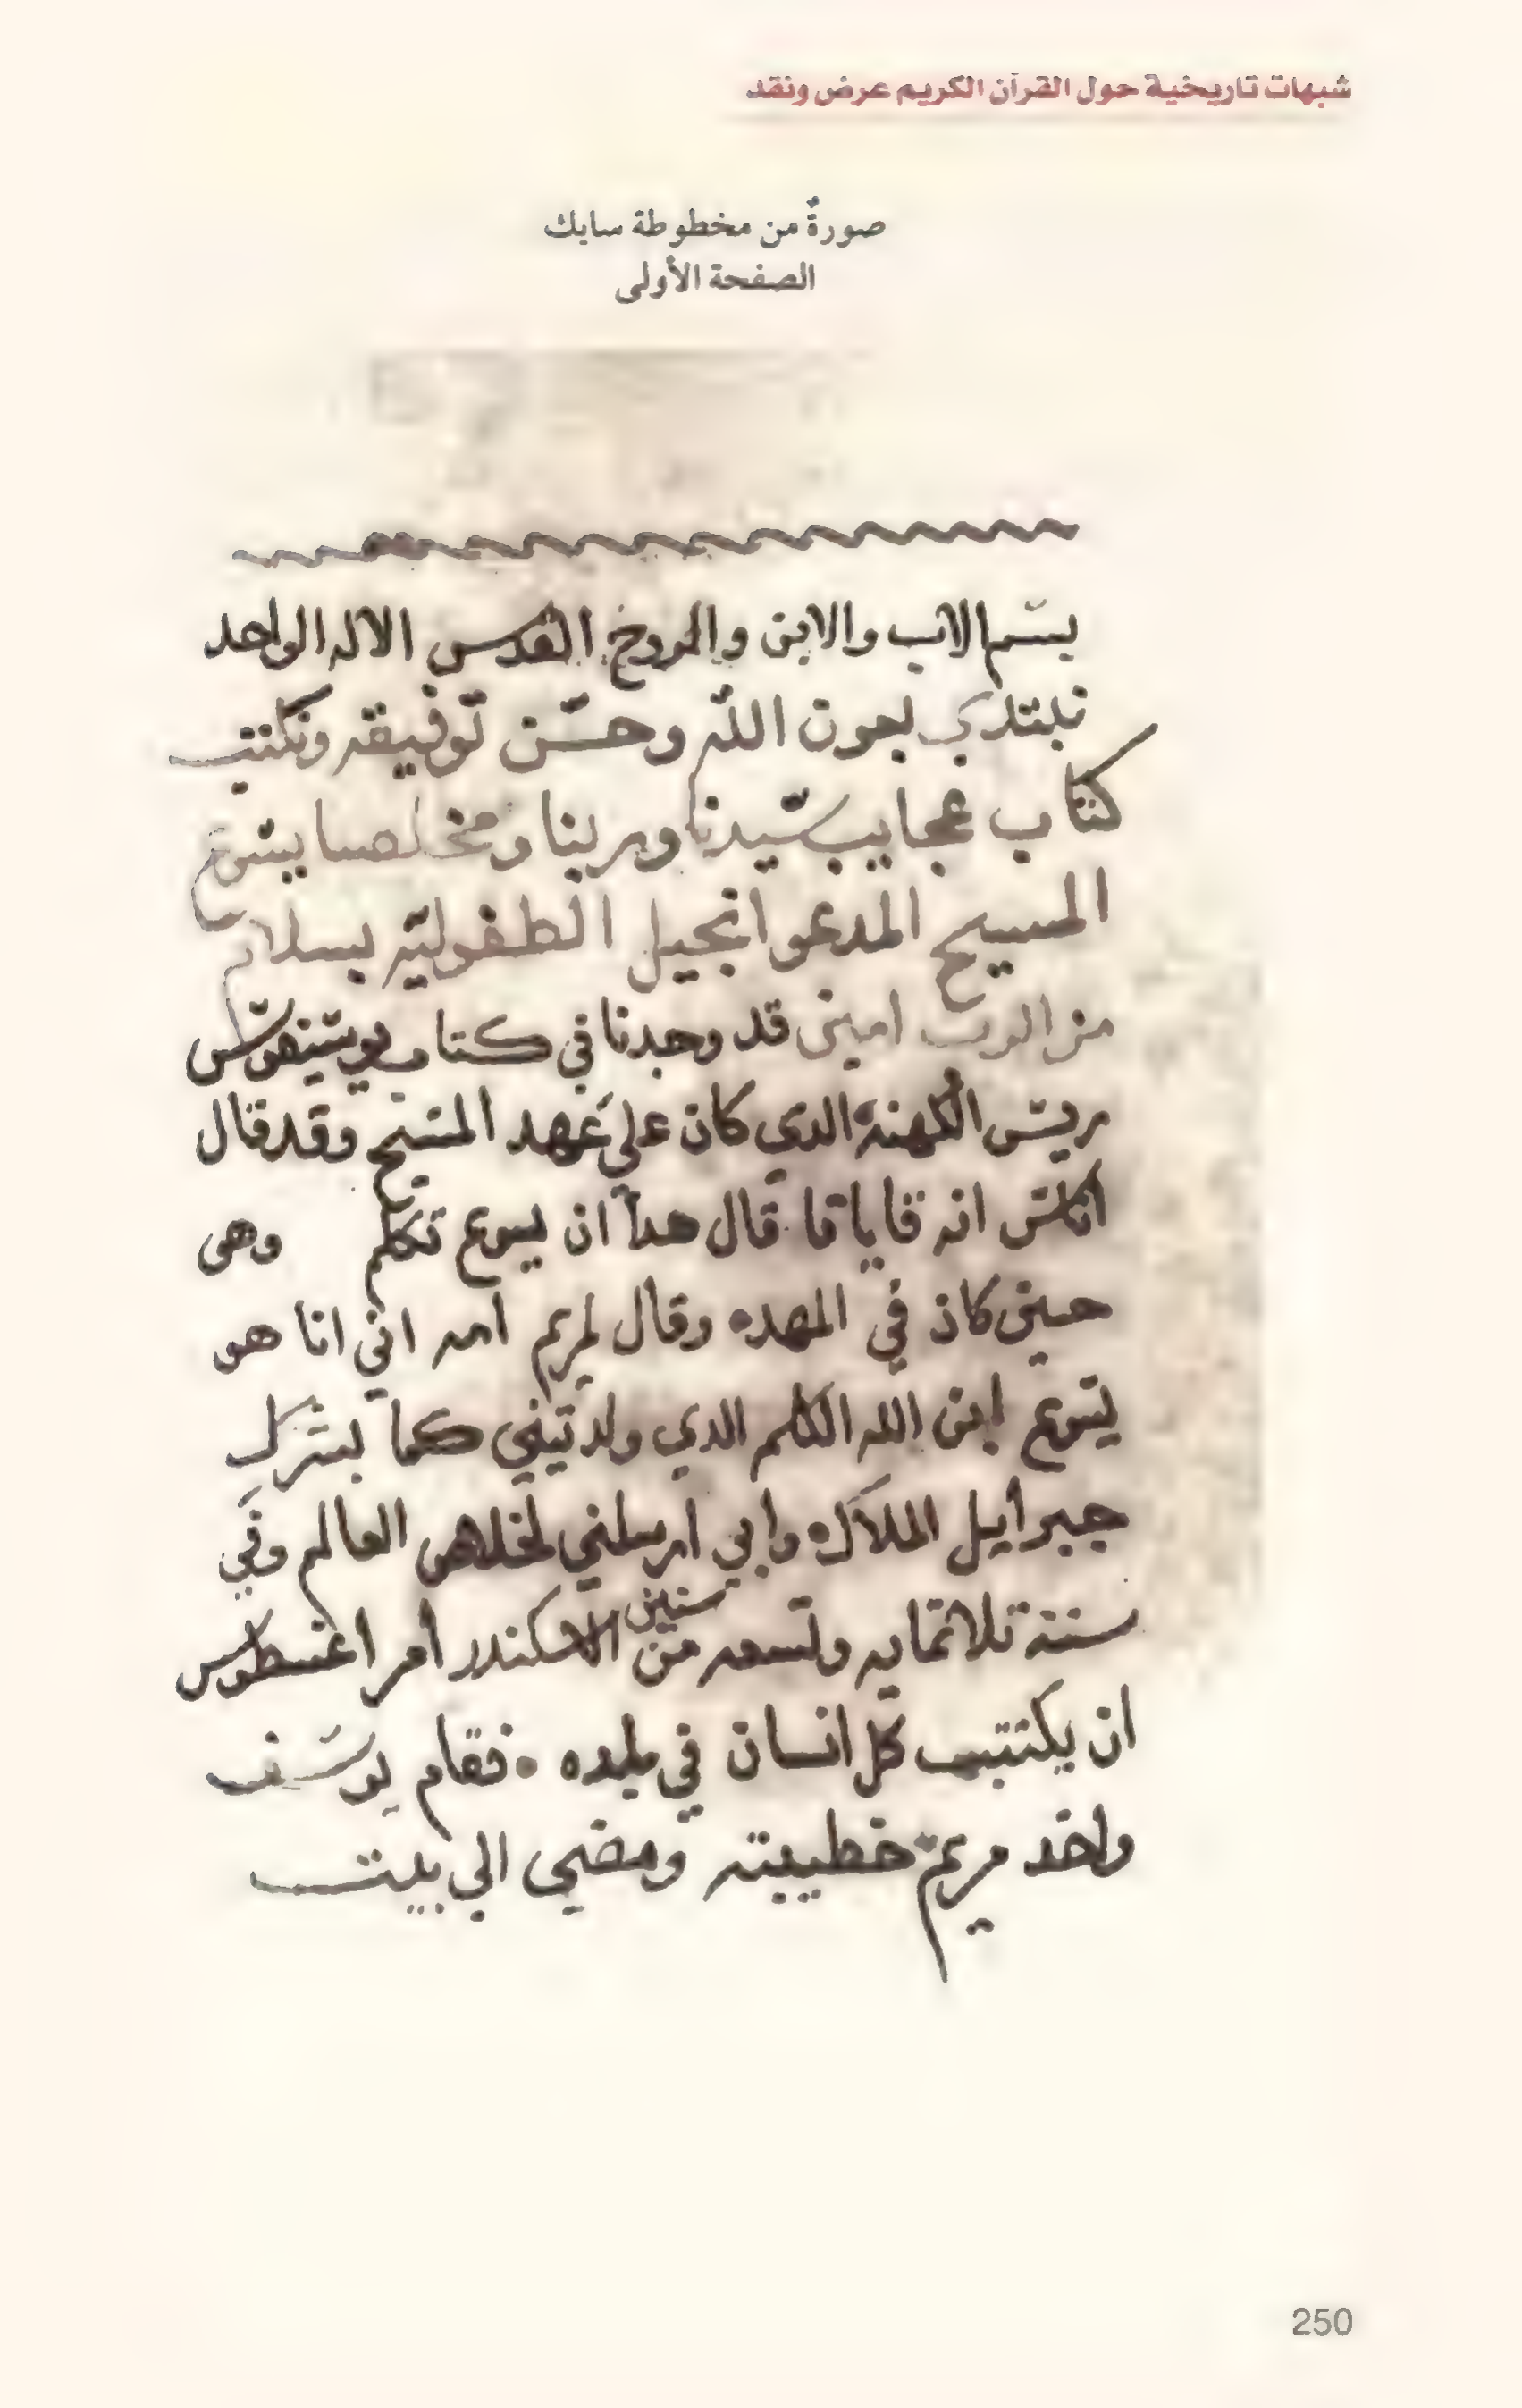 شبهات تاريخية حول القرآن الكريم عرض ونقد
صورةٌ من مخطوطة سايك
الصفحة الأولى
بسم الاب والابن والروح القدس الاله الواحد
نبتدي بعون الله وحسن توفيقه ونكتب
كتاب عجايب سيدنا وربنا ومخلصنا يسوع
المسيح المدعو انجيل الطفوليه بسلام
من الرب امين قد وجدنا في كتاب يوسيفوس
ريس الكهنة الدي كان علي عهد المسيح وقد قال
اناس انه قايافا قال هدا ان يسوع تكلم وهو
حين كان في المهد وقال لمريم امه اني انا هو
يسوع ابن الله الكلمه الدي ولدتيني كما بشرك
جبرايل الملاك وابي ارسلني لخلاص العالم وفي
سنة تلاتمايه وتسعه من سنين الاسكندر امر اغسطوس
ان يكتتب كل انسان في بلده فقام يوسف
واخد مريم خطيبته ومضي الي بيت
250